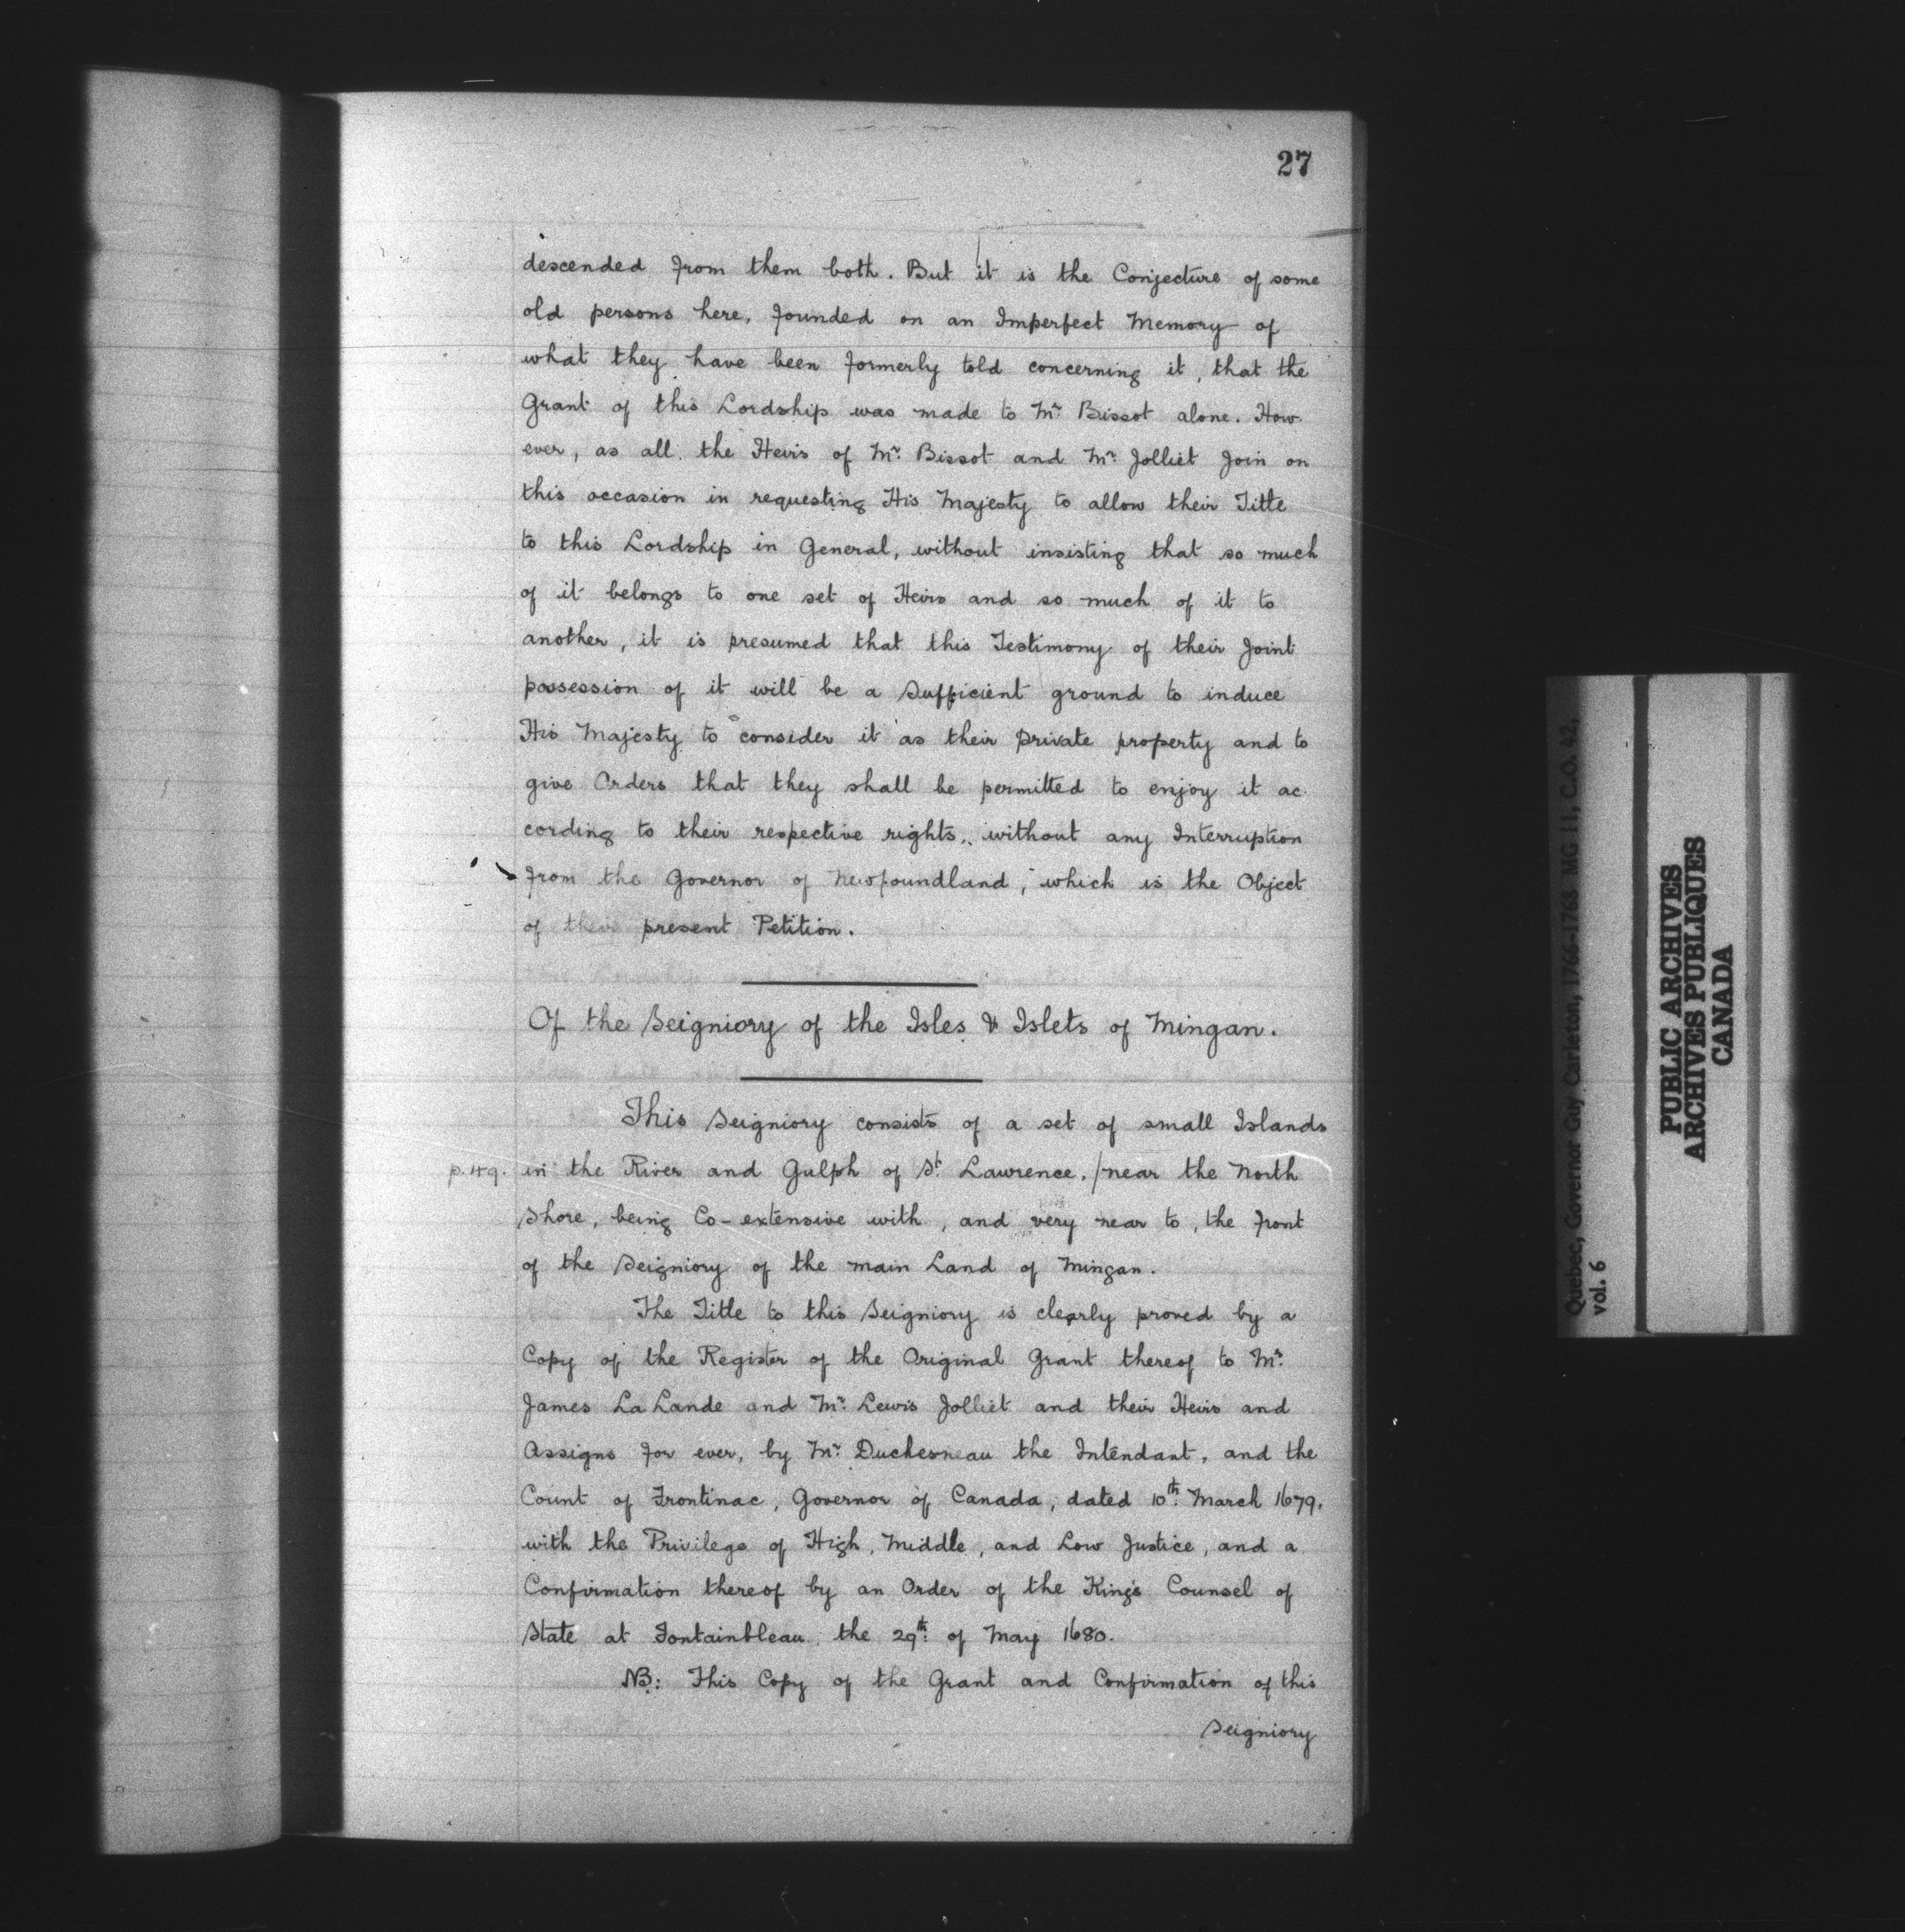 27
descended from them both. But it is the Conjecture of some
old persons here, founded on an Imperfect Memory of
what they have been formerly told concerning it, that the
Grant of this Lordship was made to Mr. Bissot alone. How-
ever, as all the Heirs of Mr. Bissot and Mr. Jolliet Join on
this occasion in requesting His Majesty to allow their Title
to this Lordship in General, without insisting that so much
of it belongs to one set of Heirs and so much of it to
another, it is presumed that this Testimony of their Joint
possession of it will be a Sufficient ground to induce
His Majesty to consider it as their private property and to
give Orders that they shall be permitted to enjoy it ac-
cording to their respective rights, without any Interruption
from the Governor of Newfoundland, which is the Object
of their present Petition.
Of the Seigniory of the Isles & Islets of Mingan.
This Seigniory consists of a set of small Islands
p. 49. in the River and Gulph of St. Lawrence, / near the North
Shore, being Co-extensive with, and very near to, the front
of the Seigniory of the main Land of Mingan.
The Title to this Seigniory is clearly proved by a
Copy of the Register of the Original Grant thereof to Mr.
James La Lande and Mr. Lewis Jolliet and their Heirs and
Assigns for ever, by Mr. Duchesneau the Intendant, and the
Count of Frontinac, Governor of Canada, dated 10th. March 1679.
with the Privilege of High, Middle, and Low Justice, and a
Confirmation thereof by an Order of the King's Counsel of
State at Fontainbleau, the 29th. of May 1680.
NB: This Copy of the Grant and Confirmation of this
Seigniory
Quebec, Governor Guy Carleton, 1766-1768 MG 11, C.O. 42,
vol. 6
PUBLIC ARCHIVES
ARCHIVES PUBLIQUES
CANADA